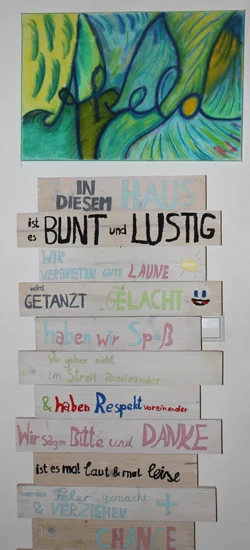 Akela
IN
DIESEM HAUS
ist
es BUNT und LUSTIG
WIR
VERBREITEN GUTE LAUNE
wird
GETANZT GELACHT
haben wir Spaß
Wir gehen nicht
im Streit auseinander
& haben Respekt voreinander
Wir sagen Bitte und DANKE
ist es mal laut & mal leise
werden Feler gemacht
& VERZIEHEN
CHANCE